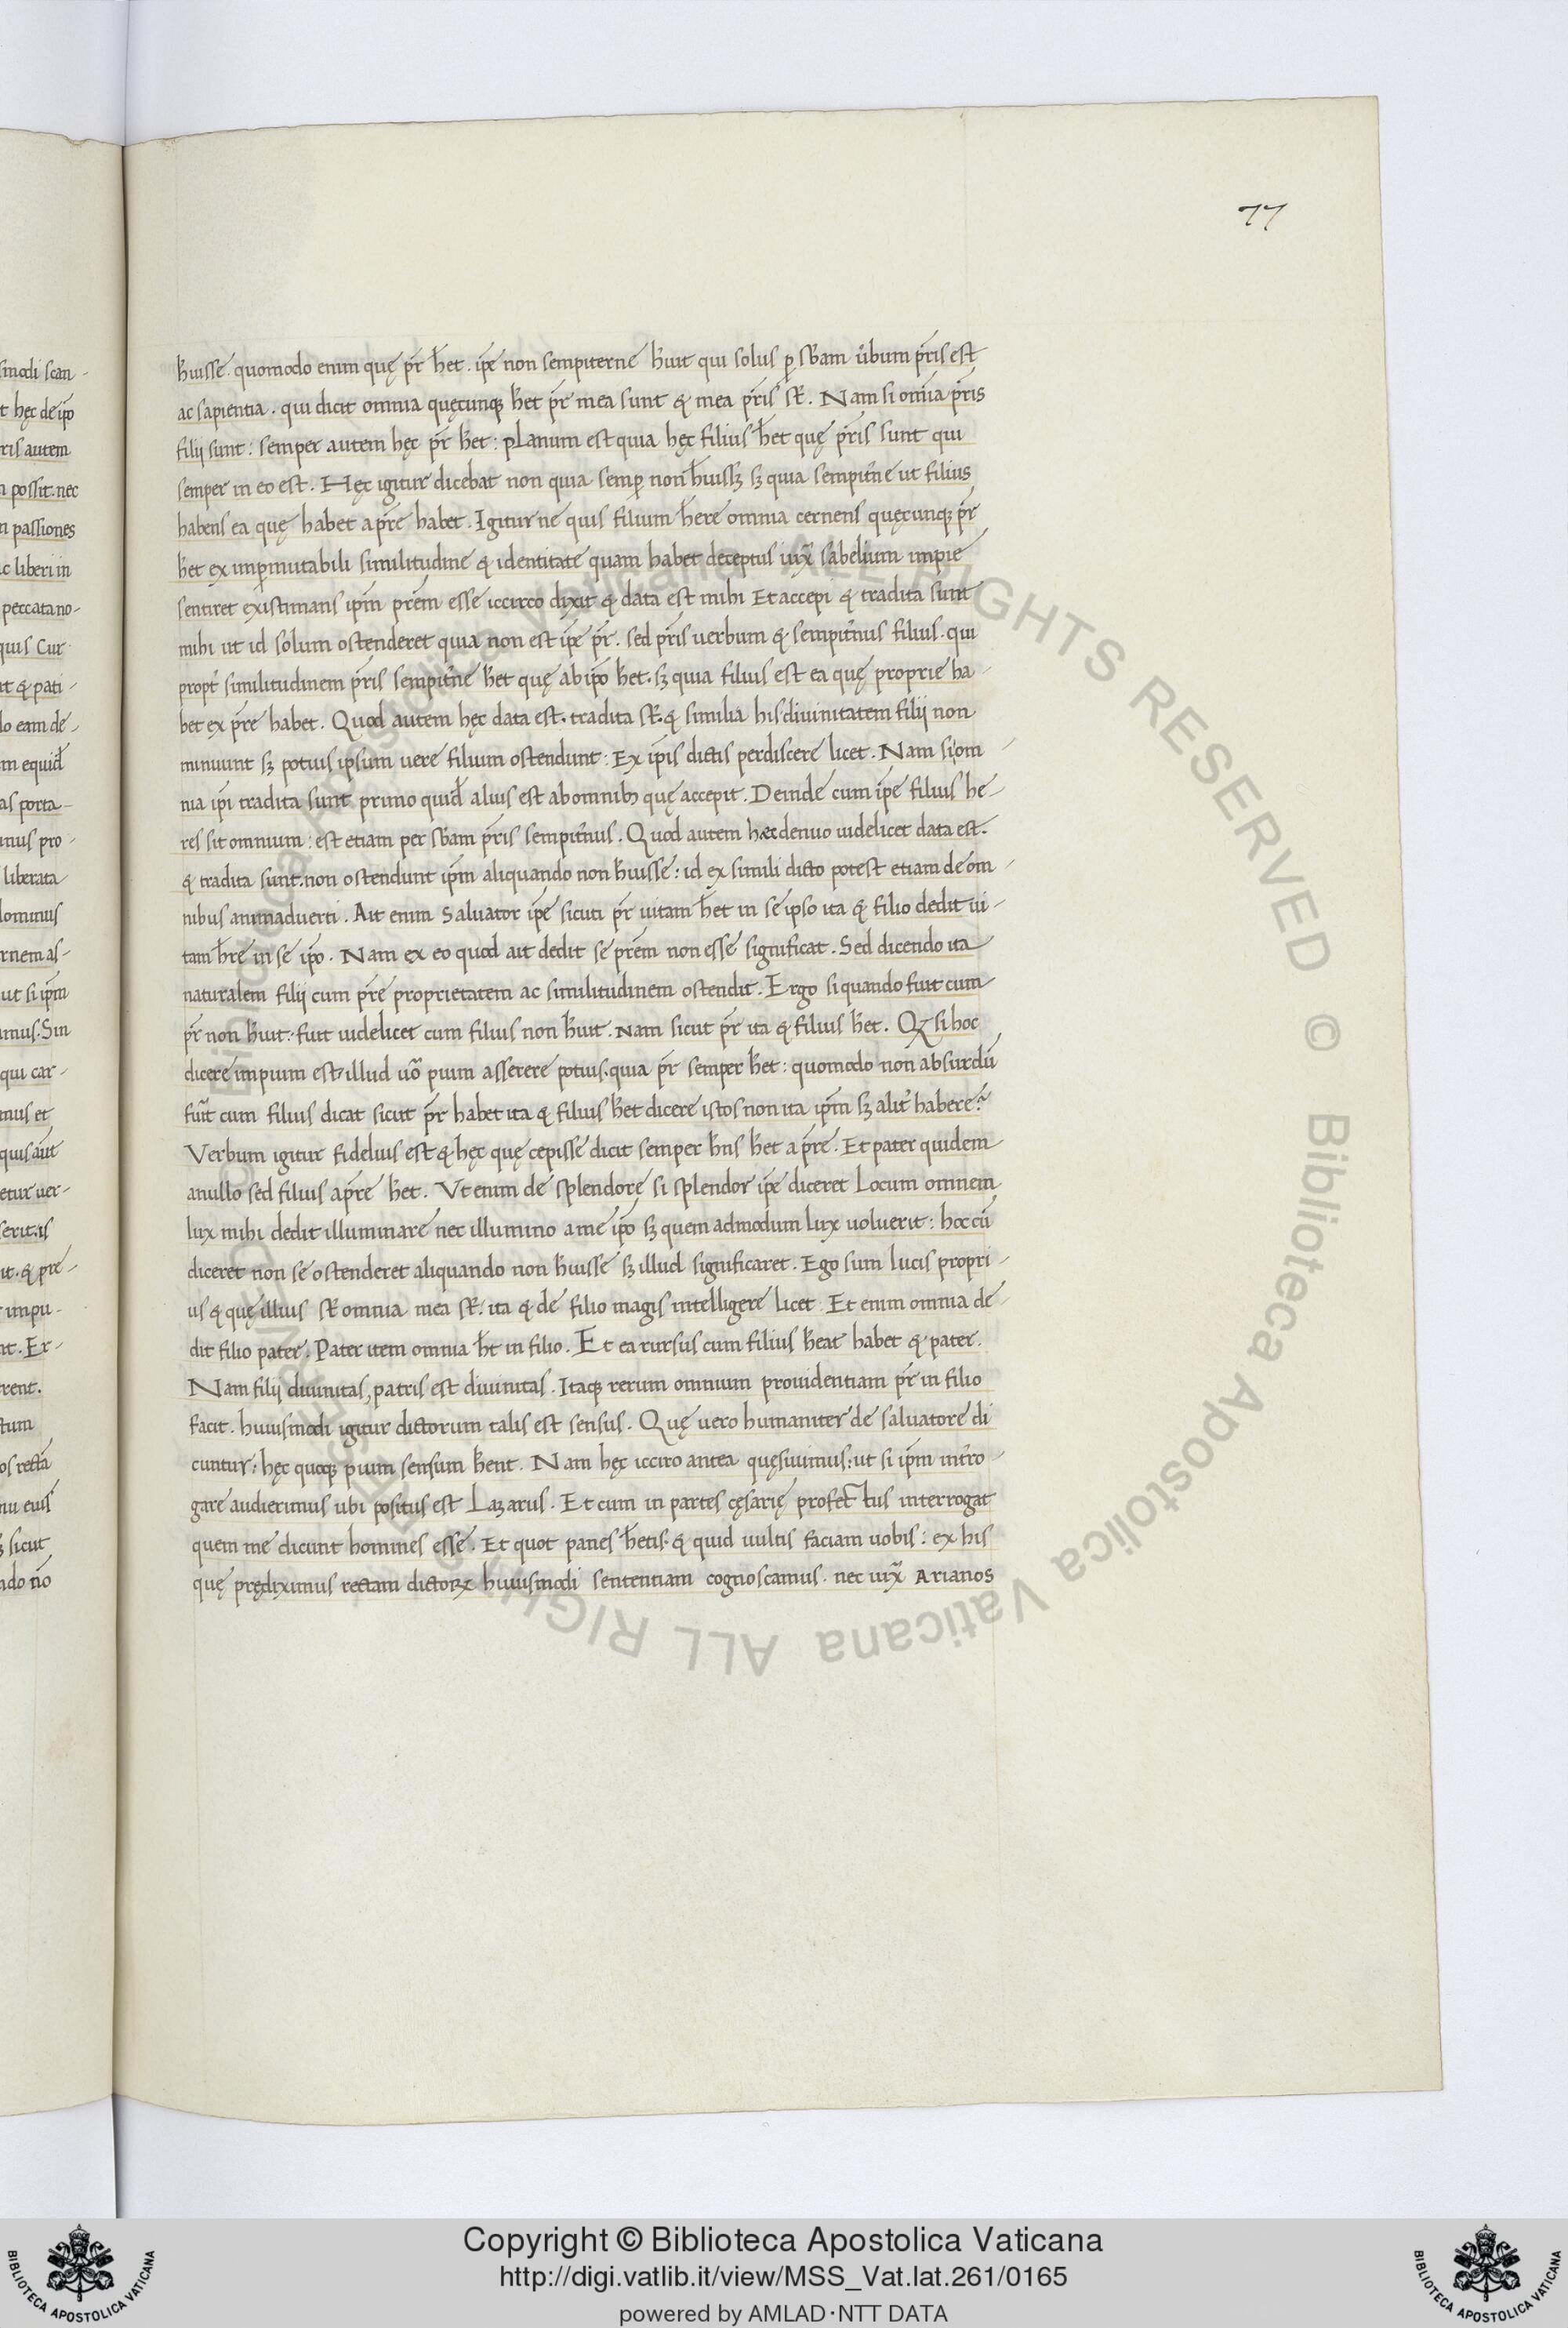 77
smodi scan-
t hęc de ip̄o
ris autem
n possit. nec
n passiones
ic liberi in
peccata no-
quis Cur
ut & pati-
lo eam de-
m equid̄
as porta-
unus pro-
liberata
lominus
rnem as-
ut si ip̄m
imus. Sin
qui car-
mus et
quis aut̄
etur uer-
serit. is
it. & pre-
impu-
nt. Ex-
rent.
tum
os rectā
nu eius
sicut
ndo nō
h̄uisse. quomodo enim quę pr̄ h̄et. ip̄e non sempiterne h̄uit qui solus ꝑ sb̄am u̓bum pr̄is est
ac sapientia. qui dicit omnia quęcunqꝫ h̄et pr̄ mea sunt & mea pr̄is st̄. Nam si omnia pr̄is
filii sunt: semper autem hęc pr̄ h̄et: planum est quia hęc filius h̄et quę pr̄is sunt qui
semper in eo est. Hęc igitur dicebat non quia semꝑ non h̄uissꝫ sꝫ quia sempit̓ne ut filius
habens ea quę habet a pr̄e habet. Igitur ne quis filium h̄ere omnia cernens quęcunqꝫ pr̄
h̄et ex imꝑmutabili similitudine & identitate quam habet deceptus iux̄ sabelium impie
sentiret existimans ip̄m pr̄em esse iccirco dixit & data est mihi Et accepi & tradita sunt
mihi ut id solum ostenderet quia non est ip̄e pr̄. sed pr̄is uerbum & sempit̓nus filius. qui
propt̓ similitudinem pr̄is sempit̓ne h̄et quę ab ip̄o h̄et. sꝫ quia filius est ea quę proprie ha-
bet ex pr̄e habet. Quod autem hęc data est. tradita st̄. & similia his diuinitatem filii non
minuunt sꝫ potius ipsum uere filium ostendunt: Ex ip̄is dictis perdiscere licet. Nam si om-
nia ip̄i tradita sunt primo quid̄ alius est ab omnibꝫ quę accepit. Deinde cum ip̄e filius he-
res sit omnium: est etiam per sb̄am pr̄is sempit̓nus. Quod autem hęc denuo uidelicet data est.
& tradita sunt. non ostendunt ip̄m aliquando non h̄uisse: id ex simili dicto potest etiam de om-
nibus animaduerti. Ait enim Saluator ip̄e sicuti pr̄ uitam h̄et in se ipso ita & filio dedit ui-
tam h̄re in se ip̄o. Nam ex eo quod ait dedit se pr̄em non esse significat. Sed dicendo ita
naturalem filii cum pr̄e proprietatem ac similitudinem ostendit. Ergo si quando fuit cum
pr̄ non h̄uit: fuit uidelicet cum filius non h̄uit. Nam sicut pr̄ ita & filius h̄et. Qꝫ si hoc
dicere impium est. illud uō pium asserere potius. quia pr̄ semper h̄et: quomodo non absurdū
fu̓it cum filius dicat sicut pr̄ habet ita & filius h̄et dicere istos non ita ip̄m sꝫ alit̓ habere?
Verbum igitur fidelius est & hęc quę cepisse dicit semper h̄ns h̄et a pr̄e. Et pater quidem
a nullo sed filius a pr̄e h̄et. Vt enim de splendore si splendor ip̄e diceret Locum omnem
lux mihi dedit illuminare nec illumino a me ip̄o sꝫ quem admodum lux uoluerit: hoc cū
diceret non se ostenderet aliquando non h̄uisse sꝫ illud significaret. Ego sum lucis propri-
us & quę illius st̄ omnia mea st̄. ita & de filio magis intelligere licet. Et enim omnia de-
dit filio pater. Pater item omnia h̄t in filio. Et ea rursus cum filius h̄eat habet & pater.
Nam filii diuinitas, patris est diuinitas. Itaqꝫ rerum omnium prouidentiam pr̄ in filio
facit. huiusmodi igitur dictorum talis est sensus. Quę uero humaniter de saluatore di
cuntur: hęc quoqꝫ pium sensum h̄ent. Nam hęc icciro antea quęsiuimus: ut si ip̄m int̓ro-
gare audierimus ubi positus est Lazarus. Et cum in partes cęsarię profectus interrogat
quem me dicunt homines esse. Et quot panes h̄etis. & quid uultis faciam uobis: ex his
quę prędiximus rectam dictoꝝ huiusmodi sententiam cognoscamus. nec iux̄ Arianos
© Biblioteca Apostolica Vaticana ALL RIGHTS RESERVED
© Biblioteca Apostolica Vaticana ALL RIGHTS RESERVED
BIBLIOTECA APOSTOLICA VATICANA
Copyright © Biblioteca Apostolica Vaticana
http://digi.vatlib.it/view/MSS_Vat.lat.261/0165
powered by AMLAD·NTT DATA
BIBLIOTECA APOSTOLICA VATICANA